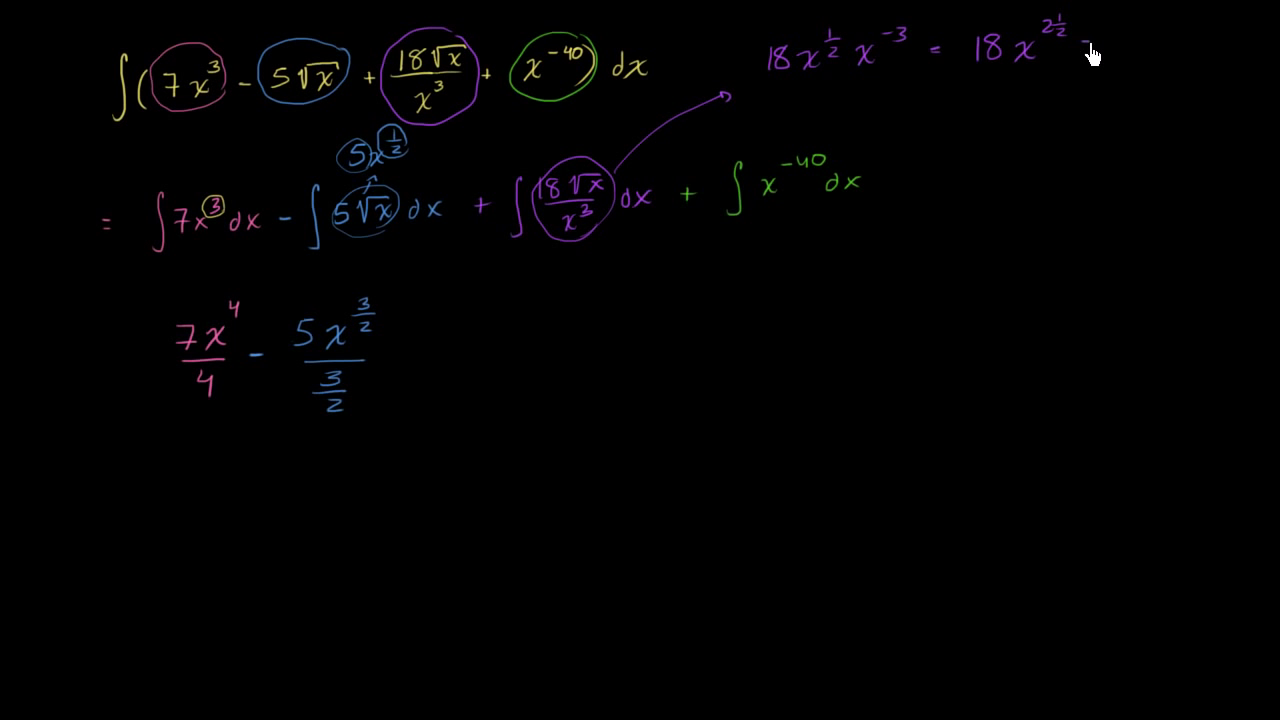 ∫(7x³ - 5√x + 18√x/x³ + x⁻⁴⁰) dx
18x^(1/2) x⁻³ = 18x^(2 1/2) -
5x^(1/2)
= ∫7x³dx - ∫5√x dx + ∫18√x/x³ dx + ∫x⁻⁴⁰dx
7x⁴/4 - 5x^(3/2)/(3/2)